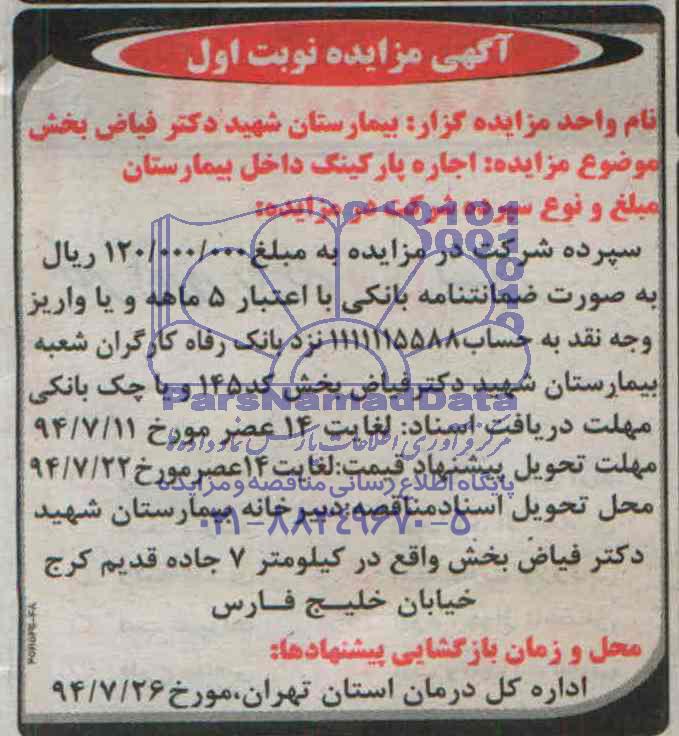 آگهی مزایده نوبت اول
نام واحد مزایده گزار: بیمارستان شهید دکتر فیاض بخش
موضوع مزایده: اجاره پارکینگ داخل بیمارستان
مبلغ و نوع سپرده شرکت در مزایده:
سپرده شرکت در مزایده به مبلغ ۱۲۰/۰۰۰/۰۰۰ ریال
به صورت ضمانتنامه بانکی با اعتبار ۵ ماهه و یا واریز
وجه نقد به حساب ۱۱۱۱۱۱۵۵۸۸ نزد بانک رفاه کارگران شعبه
بیمارستان شهید دکتر فیاض بخش کد ۱۴۵ و یا چک بانکی
ParsNamadData
مهلت دریافت اسناد: لغایت ۱۴ عصر مورخ ۹۴/۷/۱۱
مرکز فرآوری اطلاعات پارس نماد داده ها
مهلت تحویل پیشنهاد قیمت: لغایت ۱۴ عصر مورخ ۹۴/۷/۲۲
پایگاه اطلاع رسانی مناقصه و مزایده
محل تحویل اسناد مناقصه: دبیرخانه بیمارستان شهید
۰۲۱-۸۸۳۴۹۶۷۰-۵
دکتر فیاض بخش واقع در کیلومتر ۷ جاده قدیم کرج
خیابان خلیج فارس
محل و زمان بازگشایی پیشنهادها:
اداره کل درمان استان تهران، مورخ ۹۴/۷/۲۶